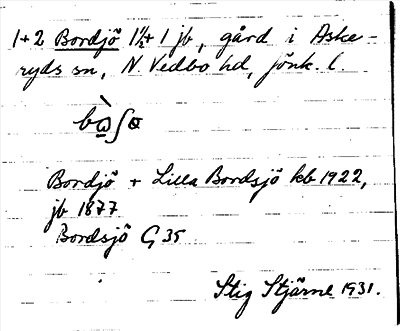 1+2 Bordjö 1½+1 jb, gård i Aske-
ryds sn, N. Vedbo hd, jönk. l.
Bordjö + Lilla Bordsjö kb 1922,
jb 1877
Bordsjö G 35
Stig Stjärne 1931.